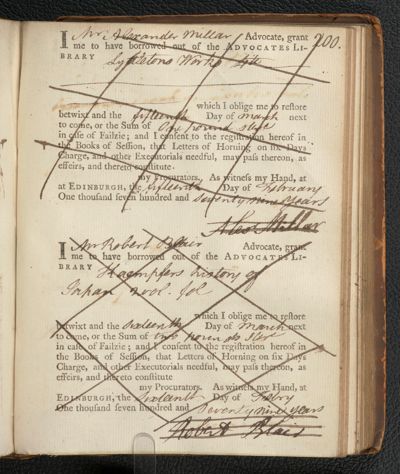 200.
I Mr. Alexander Millar Advocate, grant
me to have borrowed out of the ADVOCATES LI-
BRARY Lyttletons Works 4to
which I oblige me to reſtore
betwixt and the fifteenth Day of March next
to come, or the Sum of One pound Sterl
in caſe of Failzie; and I conſent to the regiſtration hereof in
the Books of Seſſion, that Letters of Horning on ſix Days
Charge, and other Executorials needful, may paſs thereon, as
effeirs, and thereto conſtitute
my Procurators. As witneſs my Hand, at
at EDINBURGH, the fifteenth Day of February
One thousand ſeven hundred and Seventy nine years
Alexr Millar
I Mr Robert Blair Advocate, grant
me to have borrowed out of the ADVOCATES LI-
BRARY Kaempfers history of
Japan 2 vol. fol
which I oblige me to reſtore
betwixt and the Sixteenth Day of March next
to come, or the Sum of two pounds Sterl
in caſe of Failzie; and I conſent to the regiſtration hereof in
the Books of Seſſion, that Letters of Horning on ſix Days
Charge, and other Executorials needful, may paſs thereon, as
effeirs, and thereto conſtitute
my Procurators. As witneſs my Hand, at
EDINBURGH, the Sixteenth Day of Febry
One thousand ſeven hundred and Seventy nine years
Robert Blair